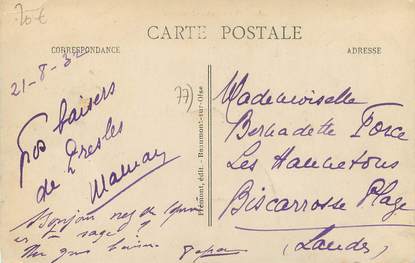 20€
CARTE POSTALE
CORRESPONDANCE
ADRESSE
21-8-32
77)
Gros baisers
de Presles
Maman
Bonjour
sage ?
Papa
Frémont, édit. - Beaumont-sur-Oise
Mademoiselle
Bernadette Force
Les Hannetons
Biscarrosse Plage
(Landes)